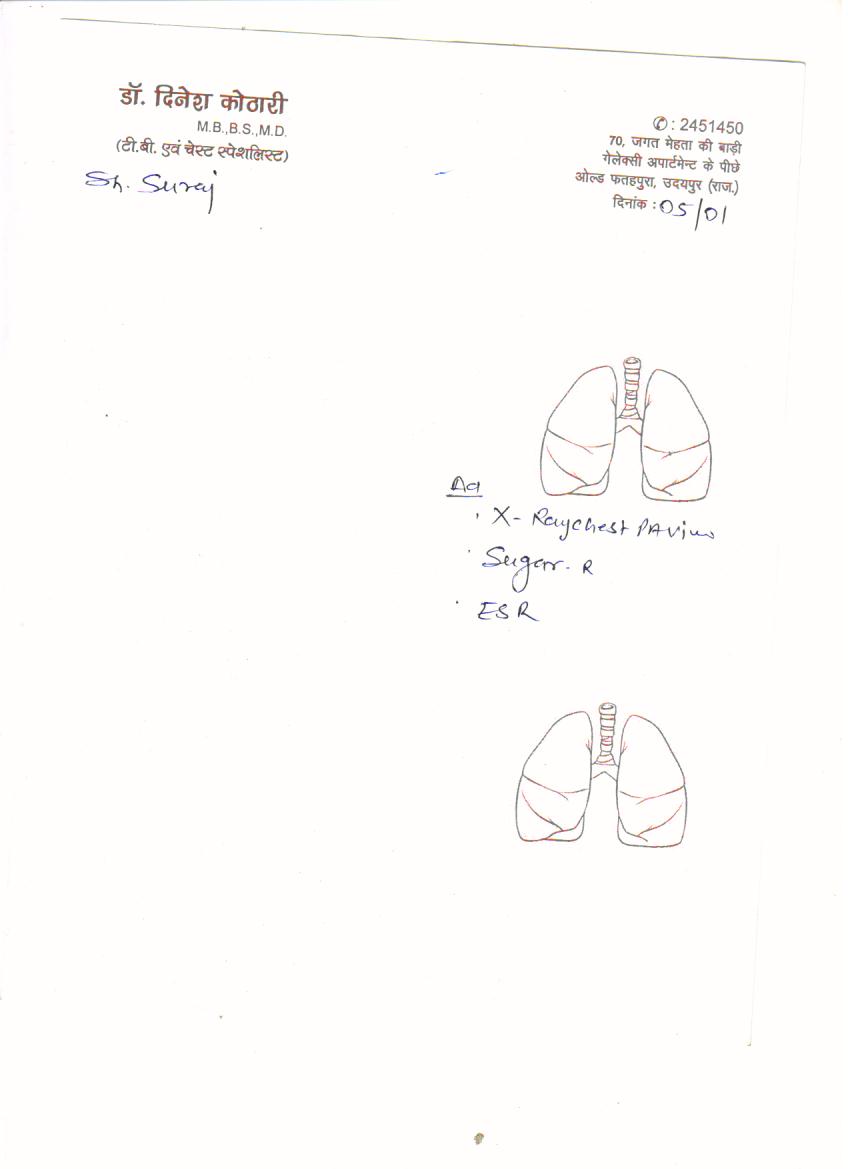 डॉ. दिनेश कोठारी
M.B.,B.S.,M.D.
(टी.बी. एवं चेस्ट स्पेशलिस्ट)
Sh. Suraj
✆ : 2451450
70, जगत मेहता की बाड़ी
गेलेक्सी अपार्टमेन्ट के पीछे
ओल्ड फतहपुरा, उदयपुर (राज.)
दिनांक : 05/01
X-Ray chest PA View
Sugar. R
ESR